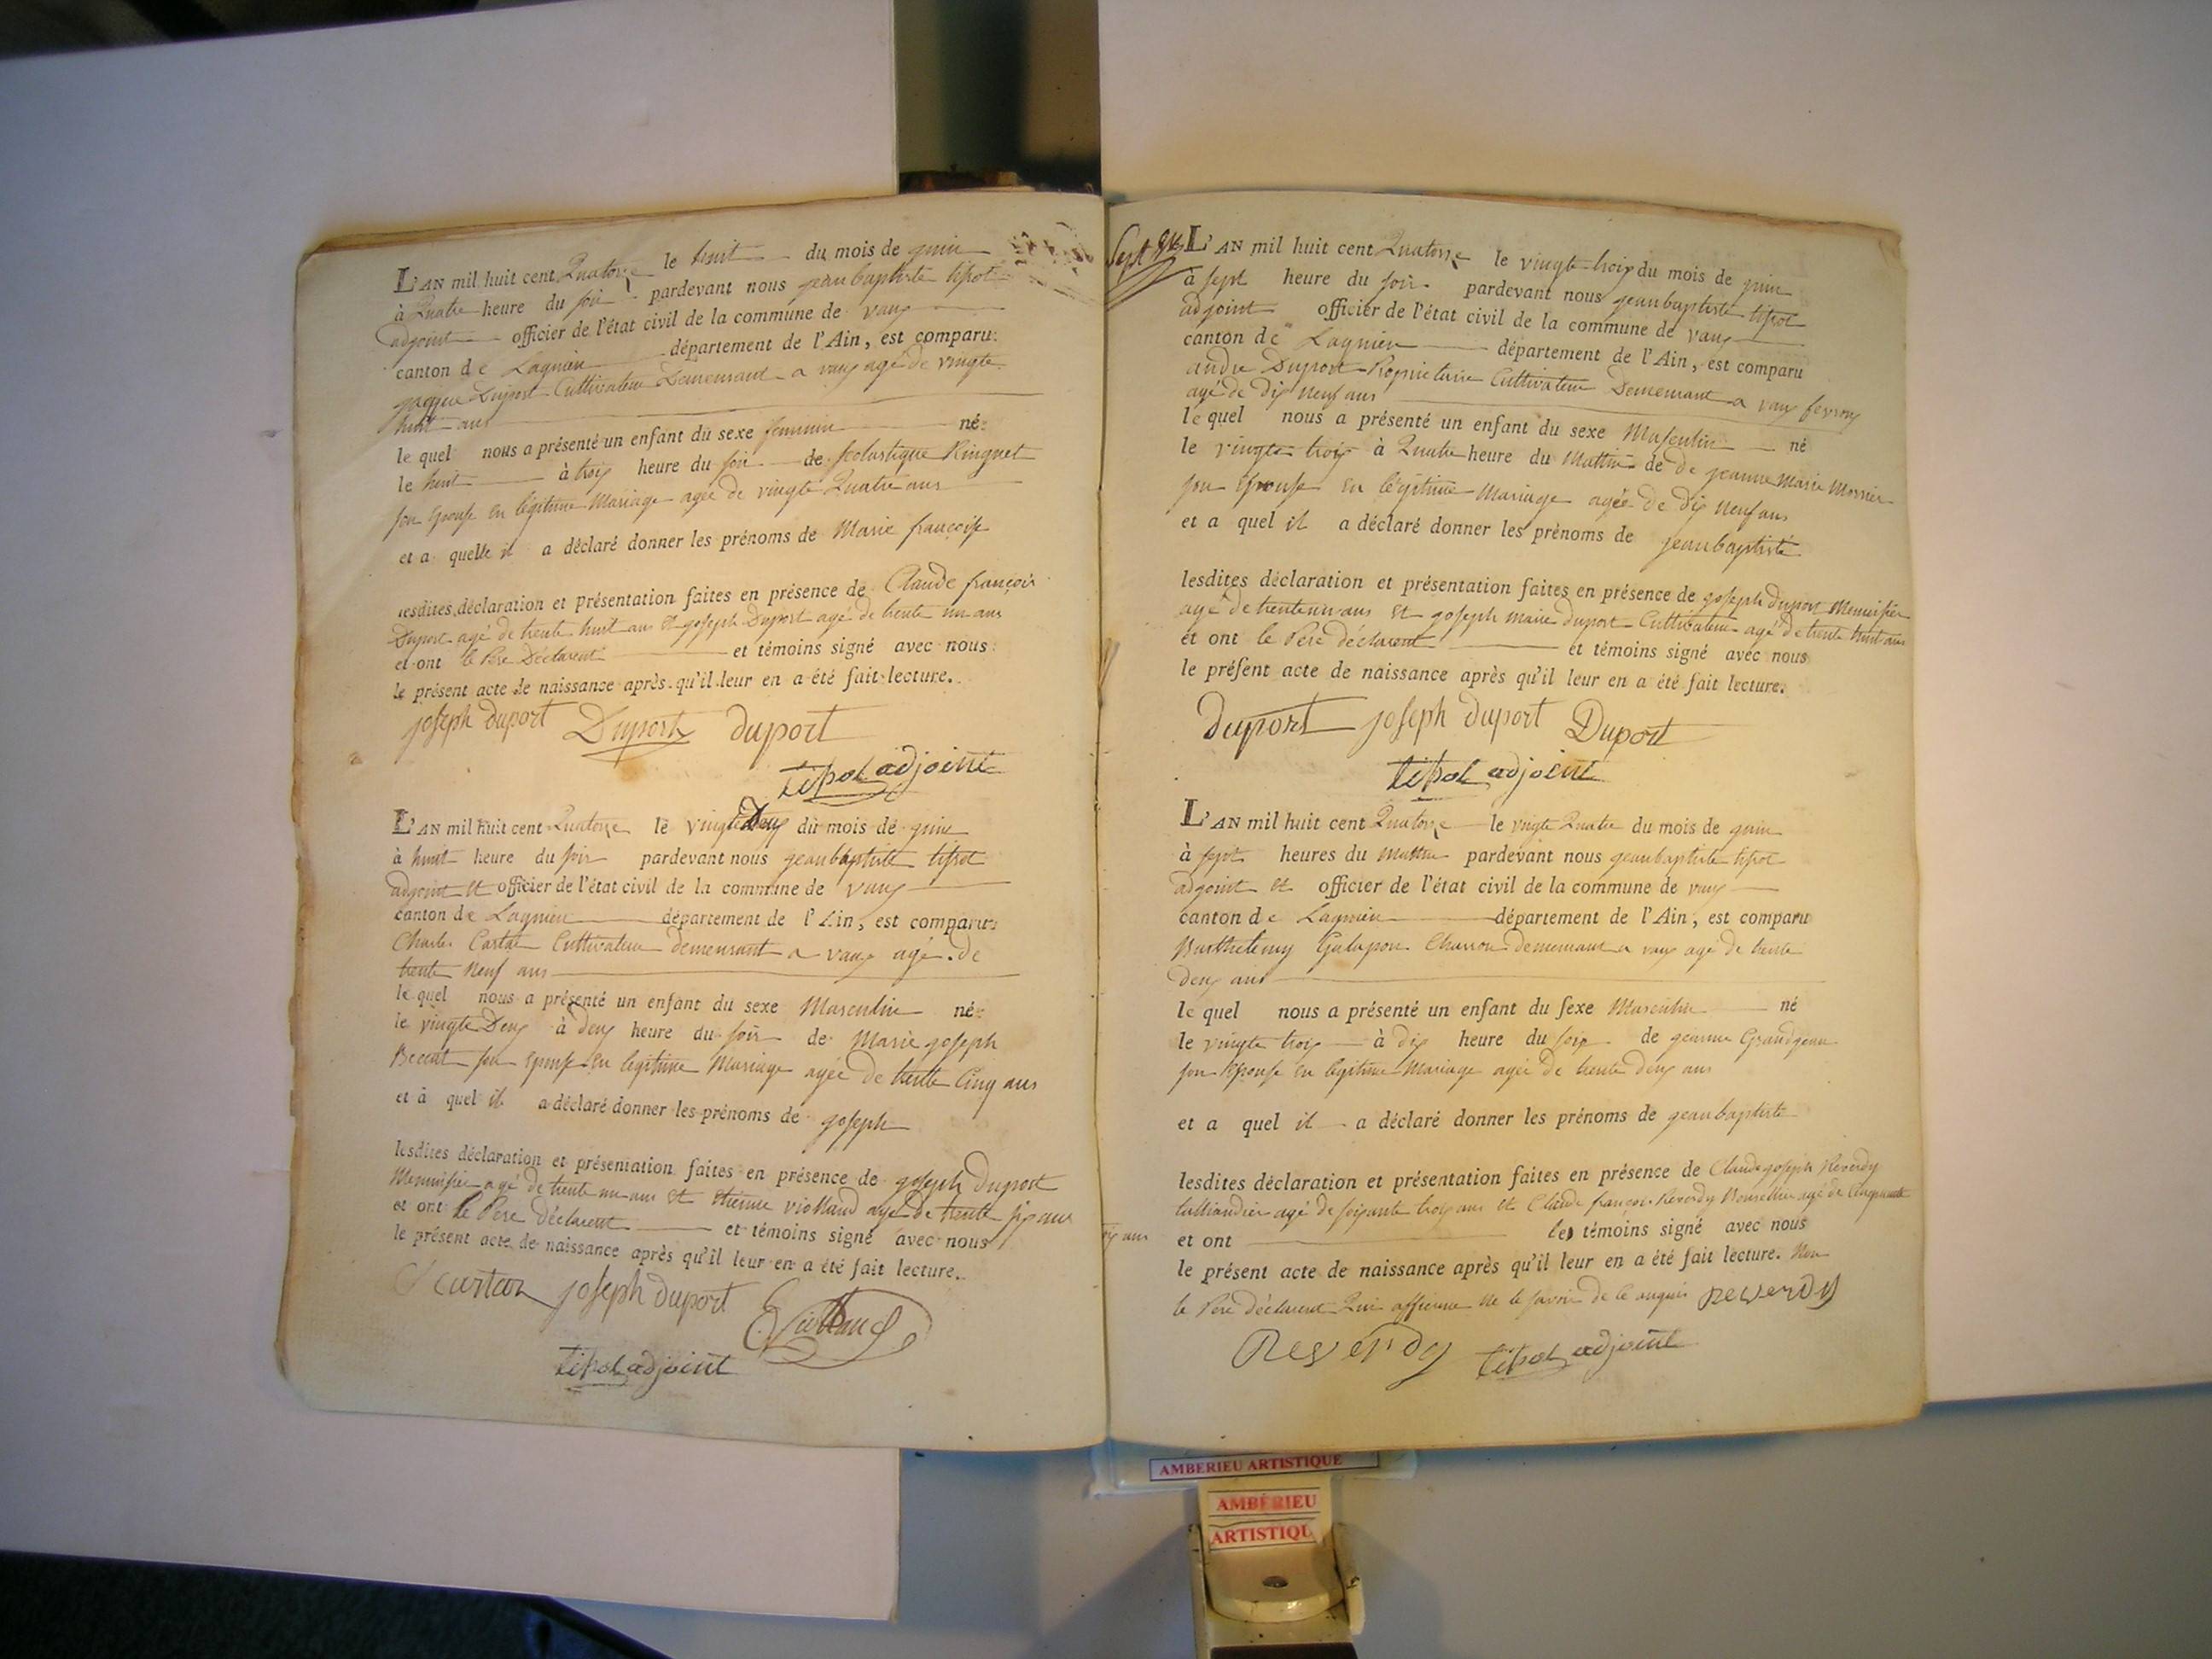 L'AN mil huit cent Quatorze le huit du mois de guin
à Quatre heure du soir pardevant nous geanbaptiste tissot
adjoint officier de l'état civil de la commune de vaux
canton de Lagnieu département de l'Ain, est comparu
Duport Cultivateur Demeurant a vaux agé de vingte
huit ans
le quel nous a présenté un enfant du sexe feminin né
le huit à troix heure du soir de scolastique Ringuet
son epouse en légitime Mariage agée de vingte Quatre ans
et a quelle il a déclaré donner les prénoms de Marie françoise
lesdites déclaration et présentation faites en présence de Claude françois
Duport agé de trente huit ans et goseph Duport agé de trente un ans
et ont le Pere Déclarent et témoins signé avec nous
le présent acte de naissance après qu'il leur en a été fait lecture.
joseph duport Duport duport
tissot adjoint
L'AN mil huit cent Quatorze le vingte Deux du mois de guin
à huit heure du soir pardevant nous geanbaptiste tissot
adjoint et officier de l'état civil de la commune de vaux
canton de Lagnieu département de l'Ain, est comparu
Charles Cultivateur demeurant a vaux agé de
trente Neuf ans
le quel nous a présenté un enfant du sexe Masculin né
le vingte Deux à deux heure du soir de Marie goseph
son epouse en legitime Mariage agée de trente Cinq ans
et à quel il a déclaré donner les prénoms de goseph
lesdites déclaration et présentation faites en présence de goseph Duport
Menuisier agé de trente un ans et etienne viollaud agé de trente six ans
et ont le Pere déclarent et témoins signé avec nous
le présent acte de naissance après qu'il leur en a été fait lecture.
joseph duport
tissot adjoint
Sept
L'AN mil huit cent Quatorze le vingte troix du mois de guin
à sept heure du soir pardevant nous geanbaptiste tissot
adjoint officier de l'état civil de la commune de vaux
canton de Lagnieu département de l'Ain, est comparu
andre Duport Proprietaire Cultivateur Demeurant a vaux
agé de dix neuf ans
le quel nous a présenté un enfant du sexe Masculin né
le vingte troix à Quatre heure du Mattin de de jeanne Marie
son Epouse en légitime Mariage agée de dix neuf ans
et a quel il a déclaré donner les prénoms de jeanbaptiste
lesdites déclaration et présentation faites en présence de goseph duport Menuisier
agé de trente un ans et goseph marie duport Cultivateur agé de trente huit ans
et ont le Pere déclarent et témoins signé avec nous
le présent acte de naissance après qu'il leur en a été fait lecture.
duport joseph duport Duport
tissot adjoint
L'AN mil huit cent Quatorze le vingte Quatre du mois de guin
à sept heures du Mattin pardevant nous geanbaptiste tissot
adjoint et officier de l'état civil de la commune de vaux
canton de Lagnieu département de l'Ain, est comparu
Barthelemy Charron demeurant a vaux agé de trente
deux ans
le quel nous a présenté un enfant du sexe Masculin né
le vingte troix à dix heure du soir de geanne Grandgean
son Epouse en légitime Mariage agée de trente deux ans
et a quel il a déclaré donner les prénoms de geanbaptiste
lesdites déclaration et présentation faites en présence de Claude joseph Reverdy
agé de soixante troix ans et Claude françois Reverdy agé de Cinquante
six ans et ont les témoins signé avec nous
le présent acte de naissance après qu'il leur en a été fait lecture. Non
le Pere déclarent Qui affirme ne le savoir de ce anquis reverdy
Reverdy tissot adjoint
AMBERIEU ARTISTIQUE
AMBÉRIEU
ARTISTIQU